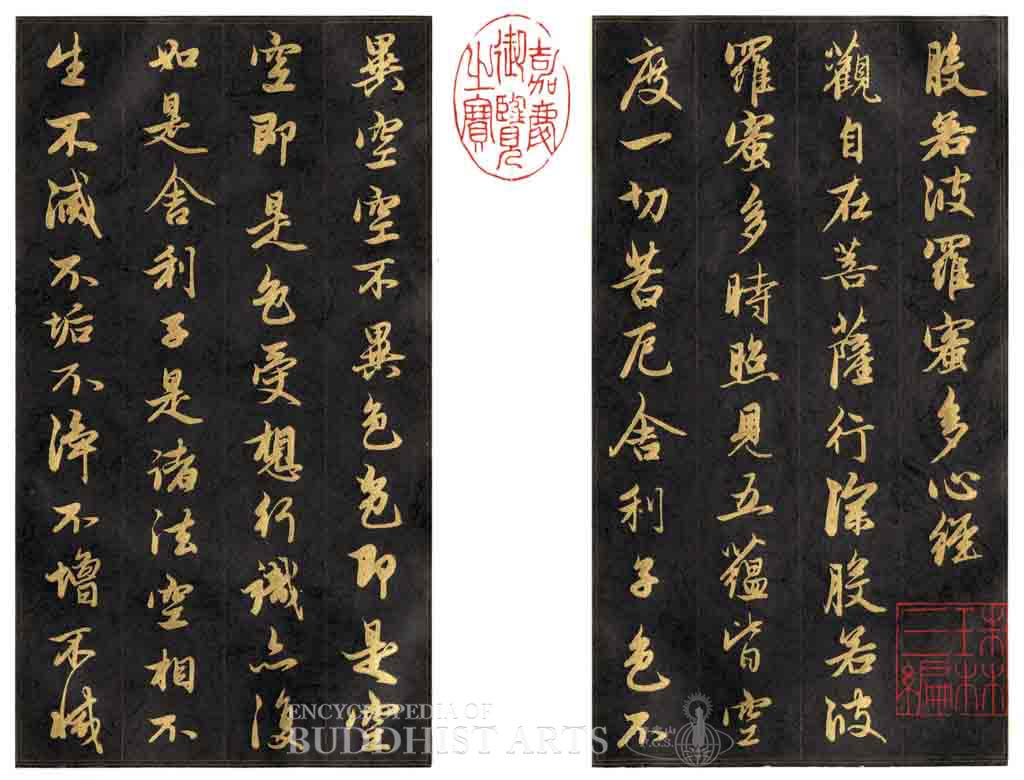 般若波羅蜜多心經
觀自在菩薩行深般若波
羅蜜多時照見五蘊皆空
度一切苦厄舍利子色不
異空空不異色色即是空
空即是色受想行識亦復
如是舍利子是諸法空相不
生不滅不垢不淨不增不減
嘉慶
御覽
之寶
珠林
三編
ENCYCLOPEDIA OF
BUDDHIST ARTS
佛光山
F.G.S.